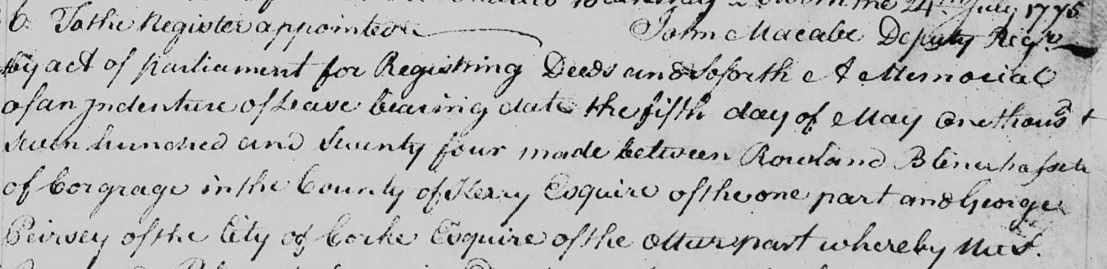 the 24th July 1775
To the Register appointed John Macabe Deputy Regr
by act of parliament for Registring Deeds and soforth A Memorial
of an Indenture of Lease bearing date the fifth day of May one thousd &
seven hundred and seventy four made between Rowland Blenerhassett
of Corgrage in the County of Kerry Esquire of the one part and George
Peirsey of the City of Corke Esquire of the other part whereby the sd.